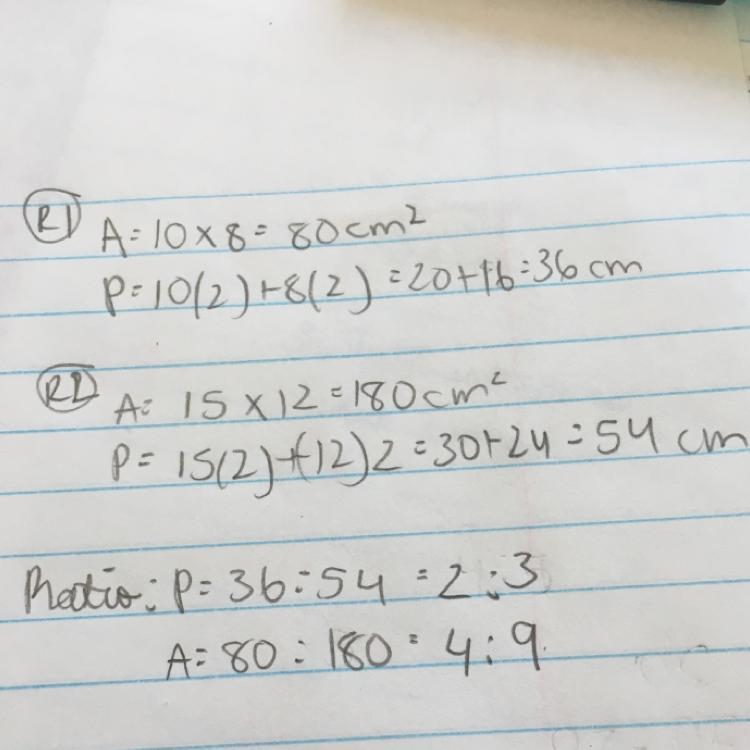 R1 A = 10 × 8 = 80 cm²
P = 10(2) + 8(2) = 20 + 16 = 36 cm
R2 A = 15 × 12 = 180 cm²
P = 15(2) + (12)2 = 30 + 24 = 54 cm
Ratio: P = 36 : 54 = 2 : 3
A = 80 : 180 = 4 : 9